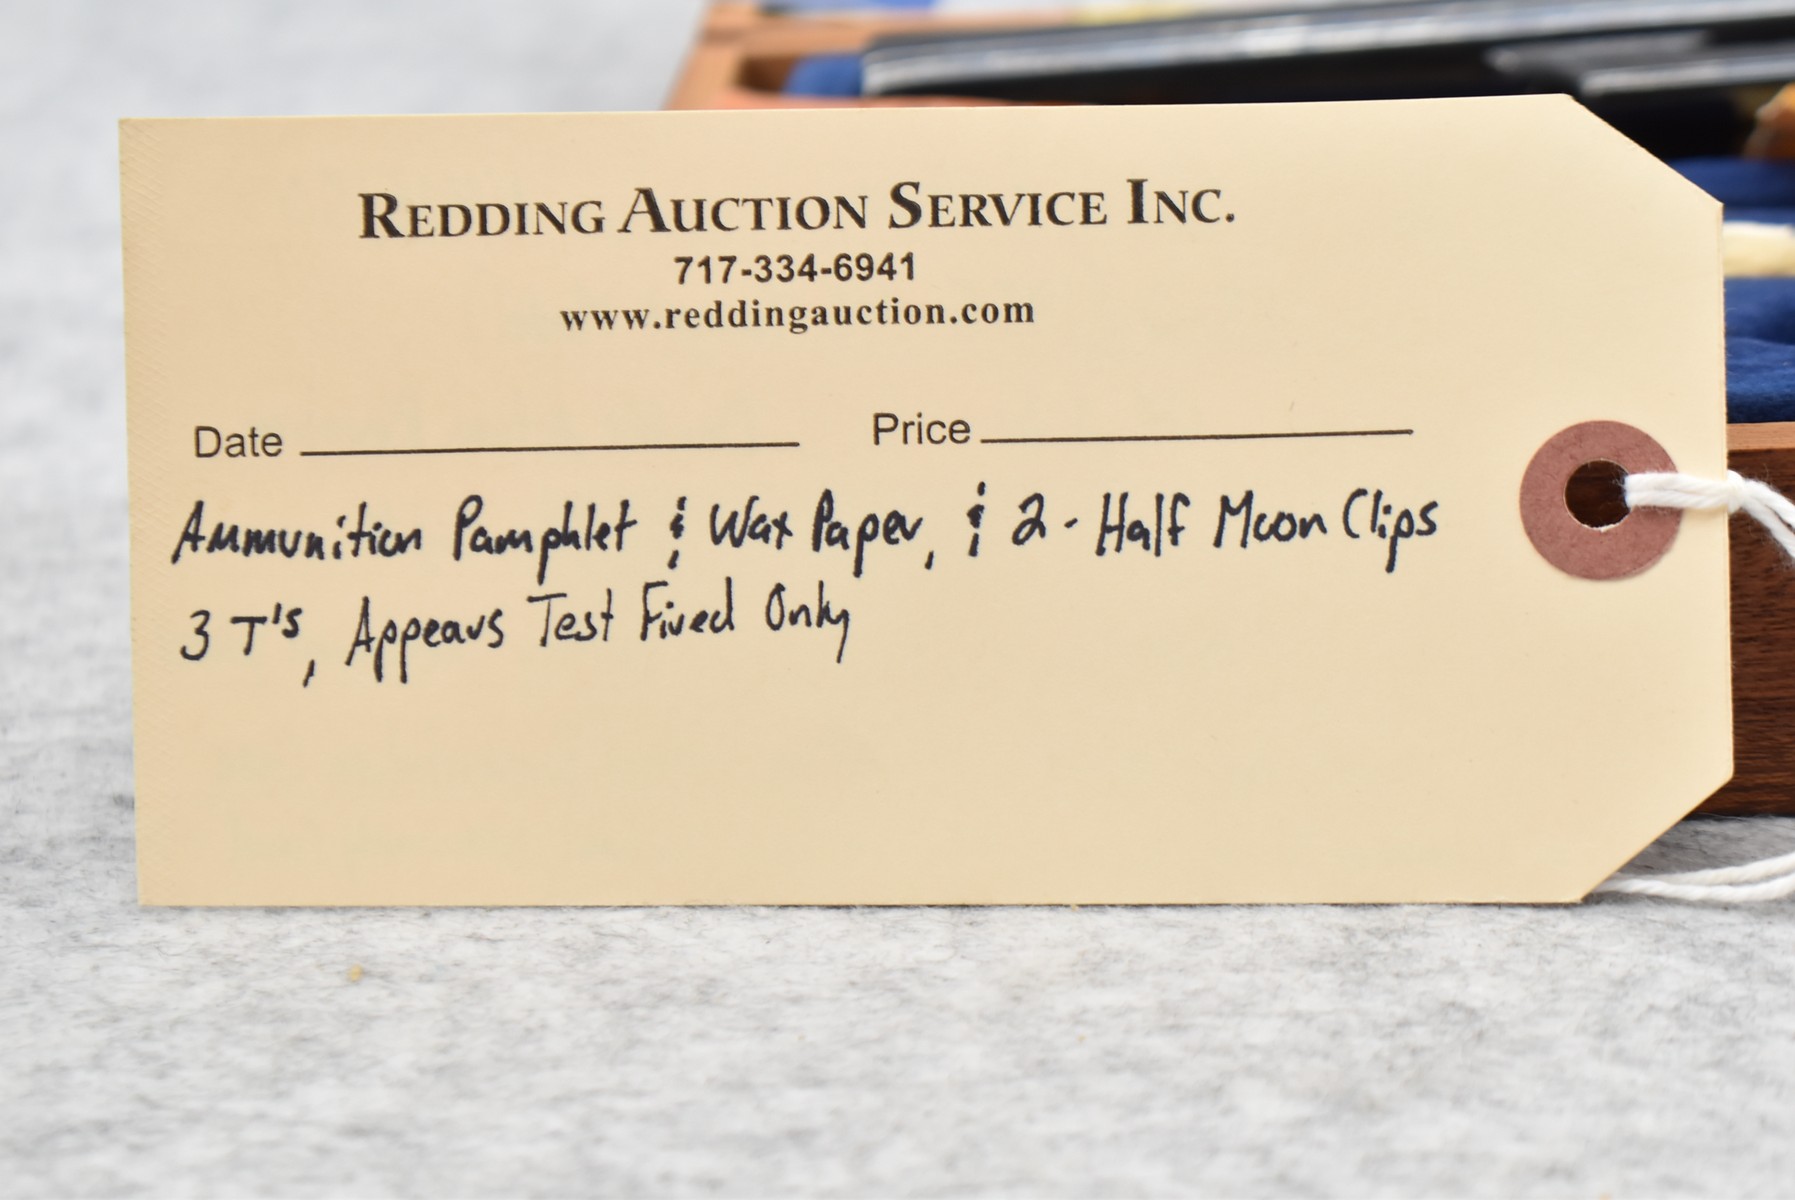 REDDING AUCTION SERVICE INC.
717-334-6941
www.reddingauction.com
Date Price
Ammunition Pamphlet & Wax Paper, & 2 - Half Moon Clips
3 T's, Appears Test Fired Only